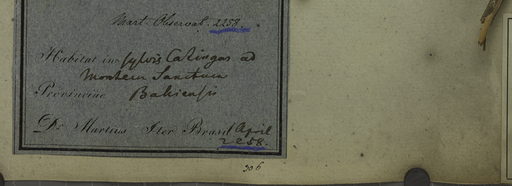 Mart. Observat. 2258.
Habitat in sylvis Catingas ad
Montem Sanctum
Provinciae Bahiensis
Dr. Martius Iter Brasil April
2258.
306